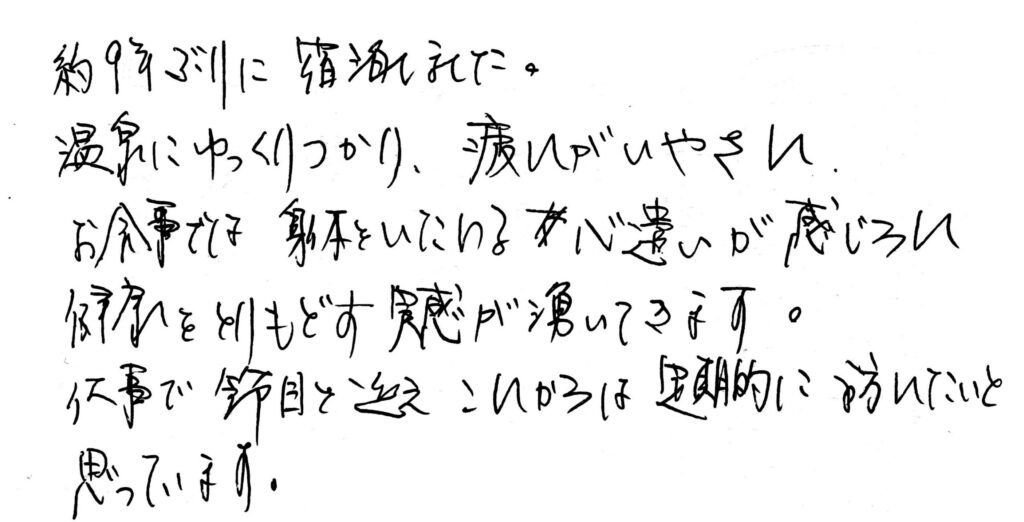 約9年ぶりに宿泊しました。
温泉にゆっくりつかり、疲れがいやされ、
お食事では身体をいたわる心遣いが感じられ
健康をとりもどす実感が湧いてきます。
仕事で節目を迎え これからは定期的に訪れたいと
思っています。